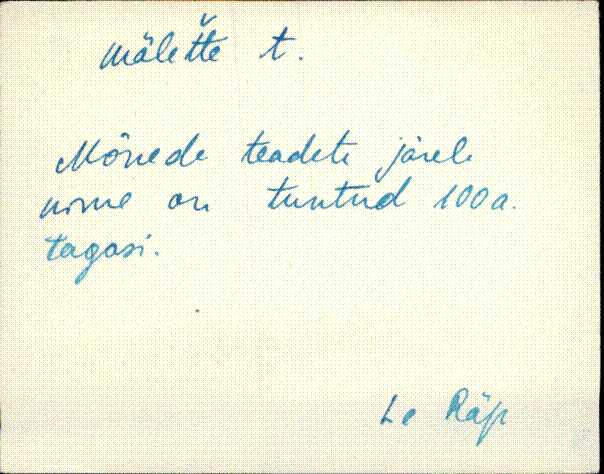 Mälette t.
Mõnede teadete järele
nime on tuntud 100 a.
tagasi.
Le Räp